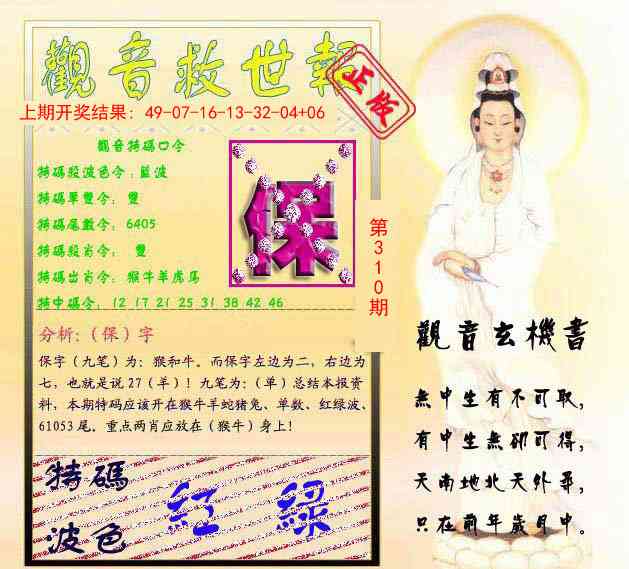 觀音救世報
正版
上期开奖结果：49-07-16-13-32-04+06
觀音特碼口令
特碼殺波色令：藍波
特碼單雙令： 雙
特碼尾數令： 6405
特碼殺肖令： 雙
特碼出肖令： 猴牛羊虎馬
特中碼令： 12 17 21 25 31 38 42 46
保
第310期
分析:（保）字
保字（九笔）为：猴和牛。而保字左边为二，右边为
七，也就是说 27（羊）！九笔为：（单）总结本报资
料，本期特码应该开在猴牛羊蛇猪兔、单数、红绿波、
61053 尾。重点两肖应放在（猴牛）身上！
特碼
波色
紅 綠
觀音玄機書
無中生有不可取，
有中生無卻可得，
天南地北天外尋，
只在前年歲月中。